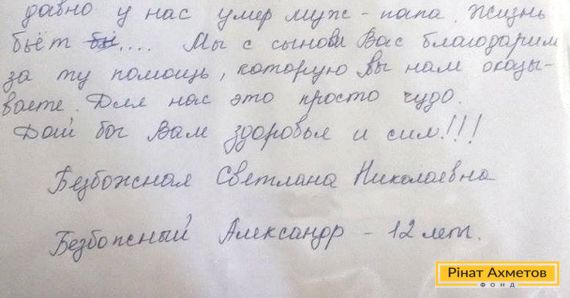 давно у нас умер муж-папа. Жизнь
бьёт .... Мы с сыном Вас благодарим
за ту помощь, которую Вы нам оказы-
ваете. Для нас это просто чудо.
Дай бог Вам здоровья и сил!!!
Безбожная Светлана Николаевна
Безбожный Александр - 12 лет.
Рінат Ахметов
ФОНД